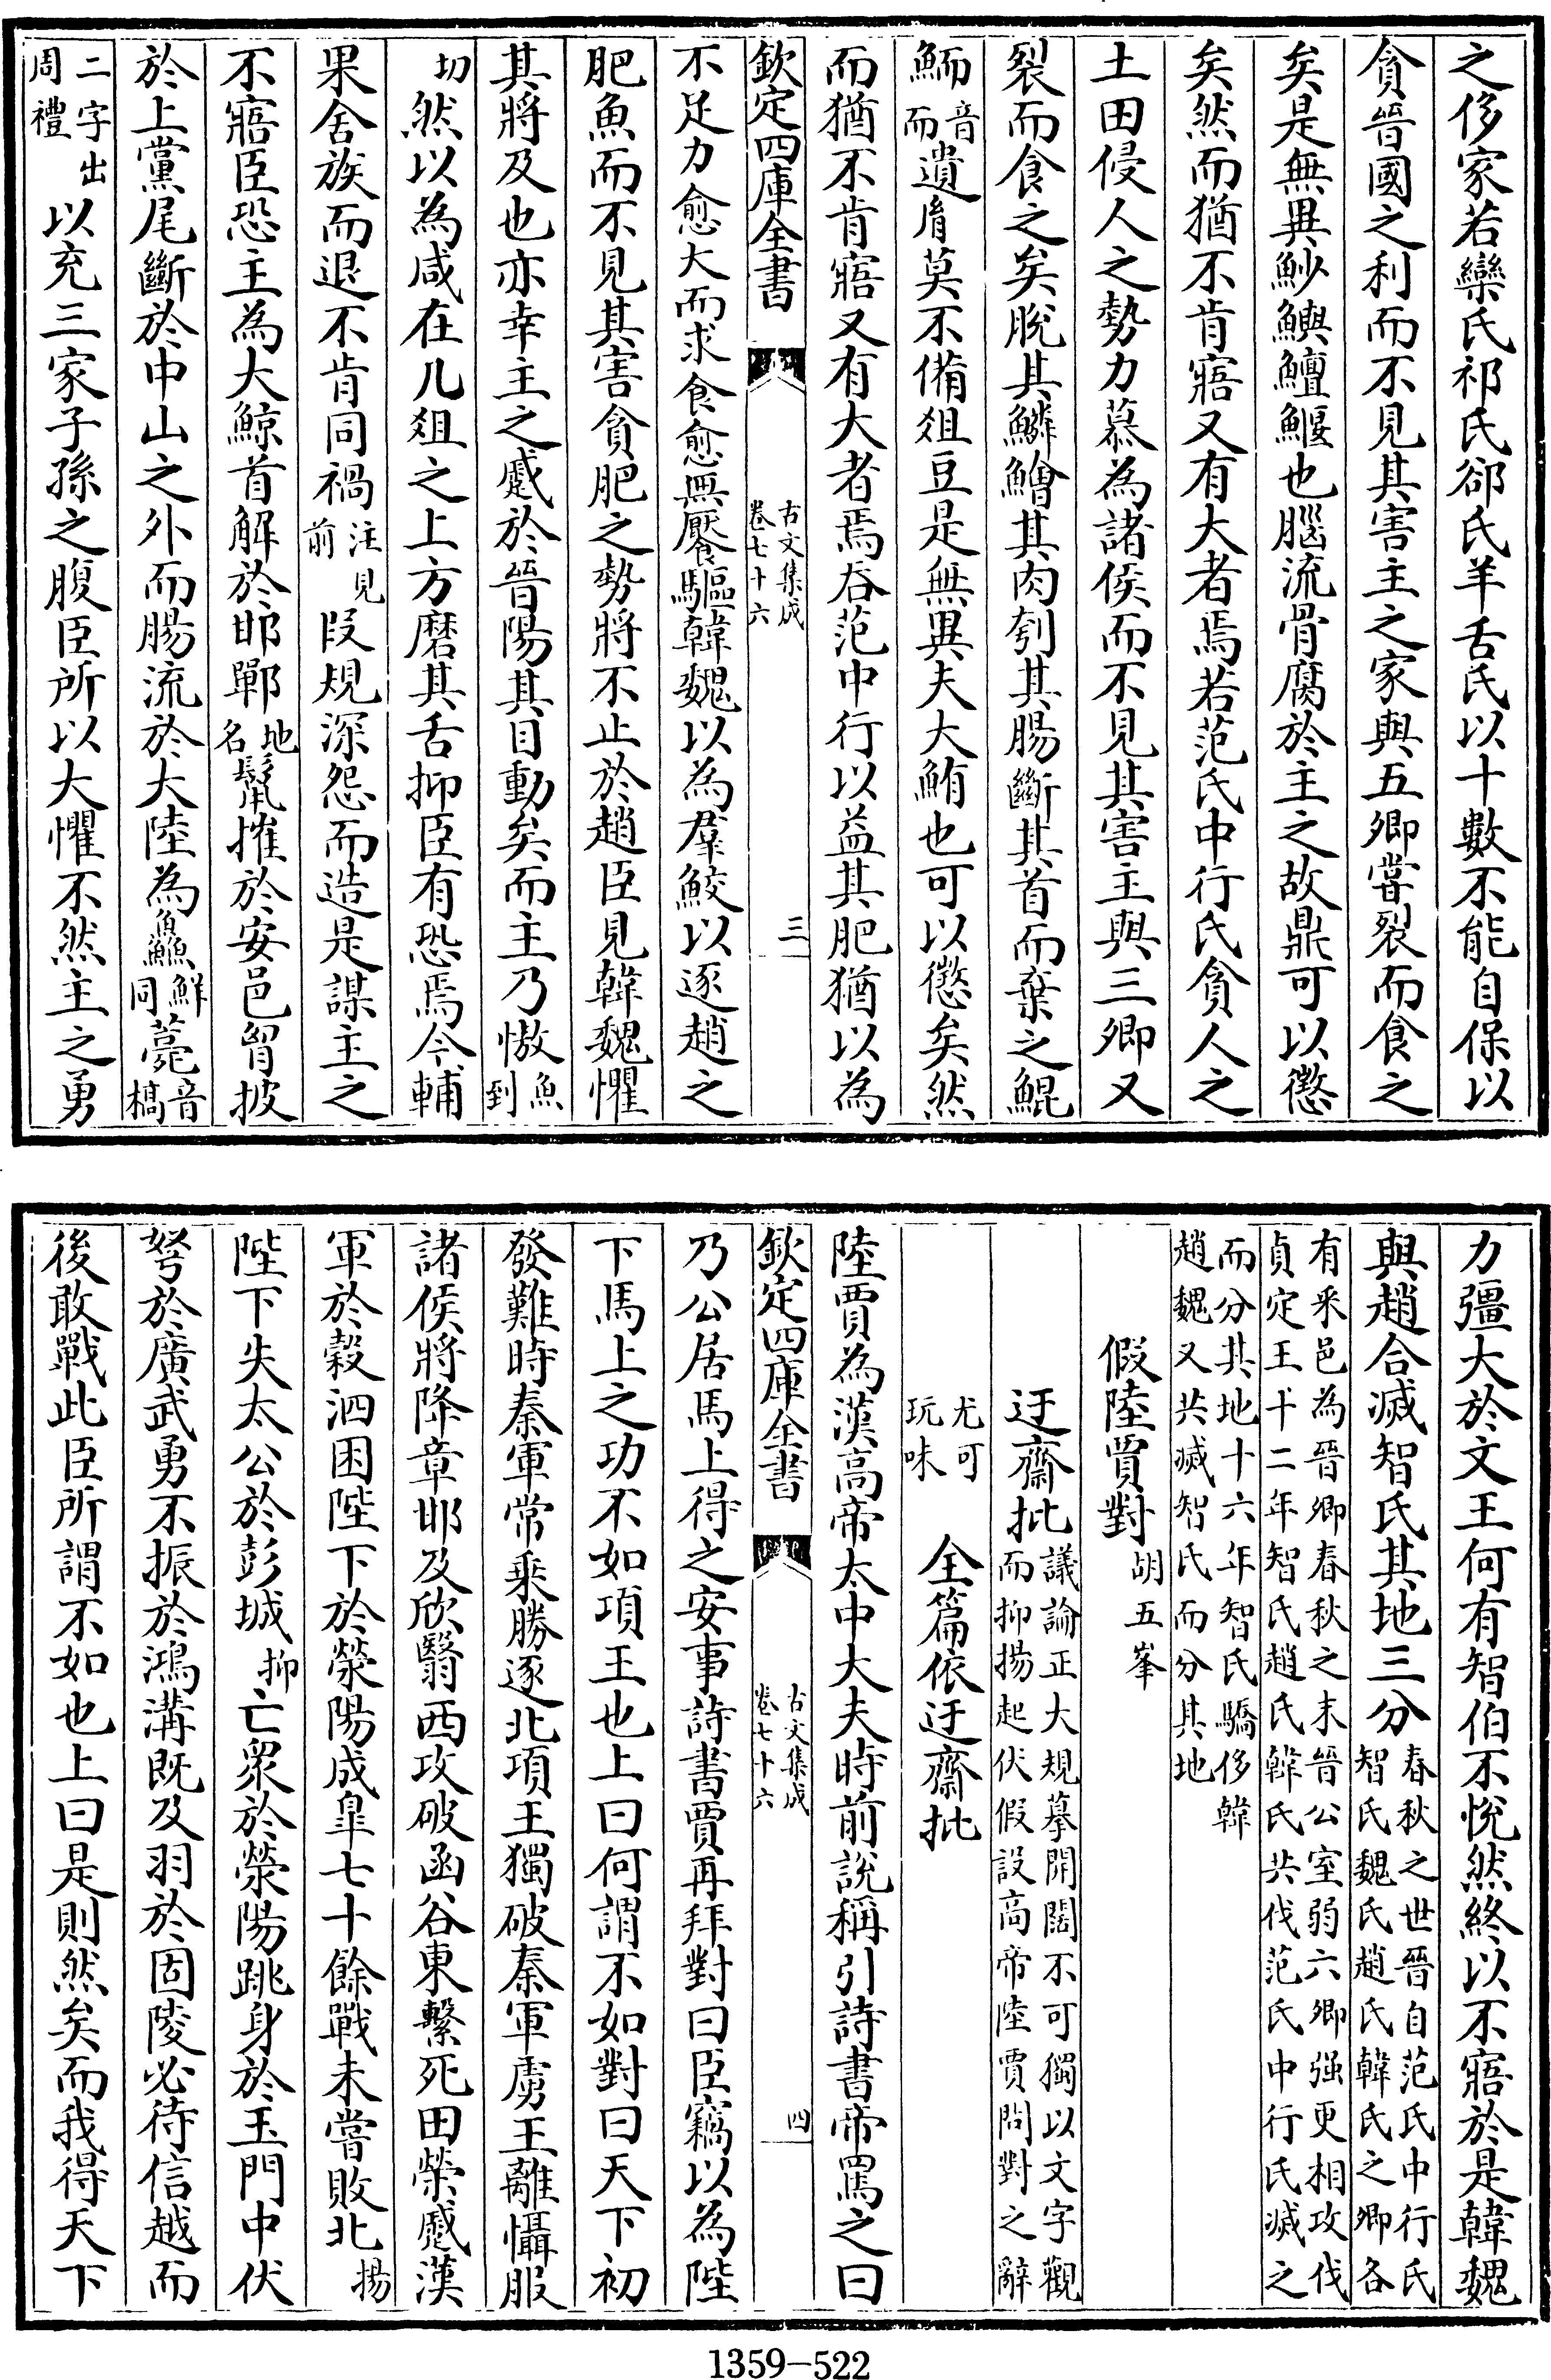 之侈家若欒氏祁氏郤氏羊舌氏以十數不能自保以
貪晉國之利而不見其害主之家與五卿嘗裂而食之
矣是無異魦鱮鱣鰋也腦流骨腐於主之故鼎可以懲
矣然而猶不肯寤又有大者焉若范氏中行氏貪人之
土田侵人之勢力慕為諸侯而不見其害主與三卿又
裂而食之矣脫其鱗鱠其肉刳其腸斷其首而棄之鯤
鮞音而遺胥莫不備俎豆是無異夫大鮪也可以懲矣然
而猶不肯寤又有大者焉吞范中行以益其肥猶以為
欽定四庫全書 古文集成卷七十六 三
不足力愈大而求食愈無饜驅韓魏以為羣鮫以逐趙之
肥魚而不見其害貪肥之勢將不止於趙臣見韓魏懼
其將及也亦幸主之蹙於晉陽其目動矣而主乃慠魚到
切然以為咸在几俎之上方磨其舌抑臣有恐焉今輔
果舍族而退不肯同禍注見前段規深怨而造是謀主之
不寤臣恐主為大鯨首解於邯鄲地名鬣摧於安邑胷披
於上黨尾斷於中山之外而腸流於大陸為鱻鮮同薧音槁
二字出周禮以充三家子孫之腹臣所以大懼不然主之勇
力彊大於文王何有智伯不悅然終以不寤於是韓魏
與趙合滅智氏其地三分春秋之世晉自范氏中行氏智氏魏氏趙氏韓氏之卿各
有采邑為晉卿春秋之末晉公室弱六卿强更相攻伐貞定王十二年智氏趙氏韓氏共伐范氏中行氏滅之
而分其地十六年智氏驕侈韓趙魏又共滅智氏而分其地
假陸賈對 胡五峯
迂齋批議論正大規摹開闊不可獨以文字觀而抑揚起伏假設高帝陸賈問對之辭
尤可玩味 全篇依迂齋批
陸賈為漢高帝太中大夫時前說稱引詩書帝罵之曰
欽定四庫全書 古文集成卷七十六 四
乃公居馬上得之安事詩書賈再拜對曰臣竊以為陛
下馬上之功不如項王也上曰何謂不如對曰天下初
發難時秦軍常乘勝逐北項王獨破秦軍虜王離懾服
諸侯將降章邯及欣翳西攻破函谷東繫死田榮蹙漢
軍於穀泗困陛下於滎陽成臯七十餘戰未嘗敗北揚
陛下失太公於彭城抑亡衆於滎陽跳身於玉門中伏
弩於廣武勇不振於鴻溝既及羽於固陵必待信越而
後敢戰此臣所謂不如也上曰是則然矣而我得天下
1359—522